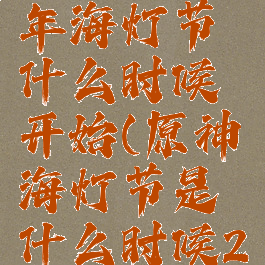 年海灯节
什么时候
开始(原神
海灯节是
什么时候2